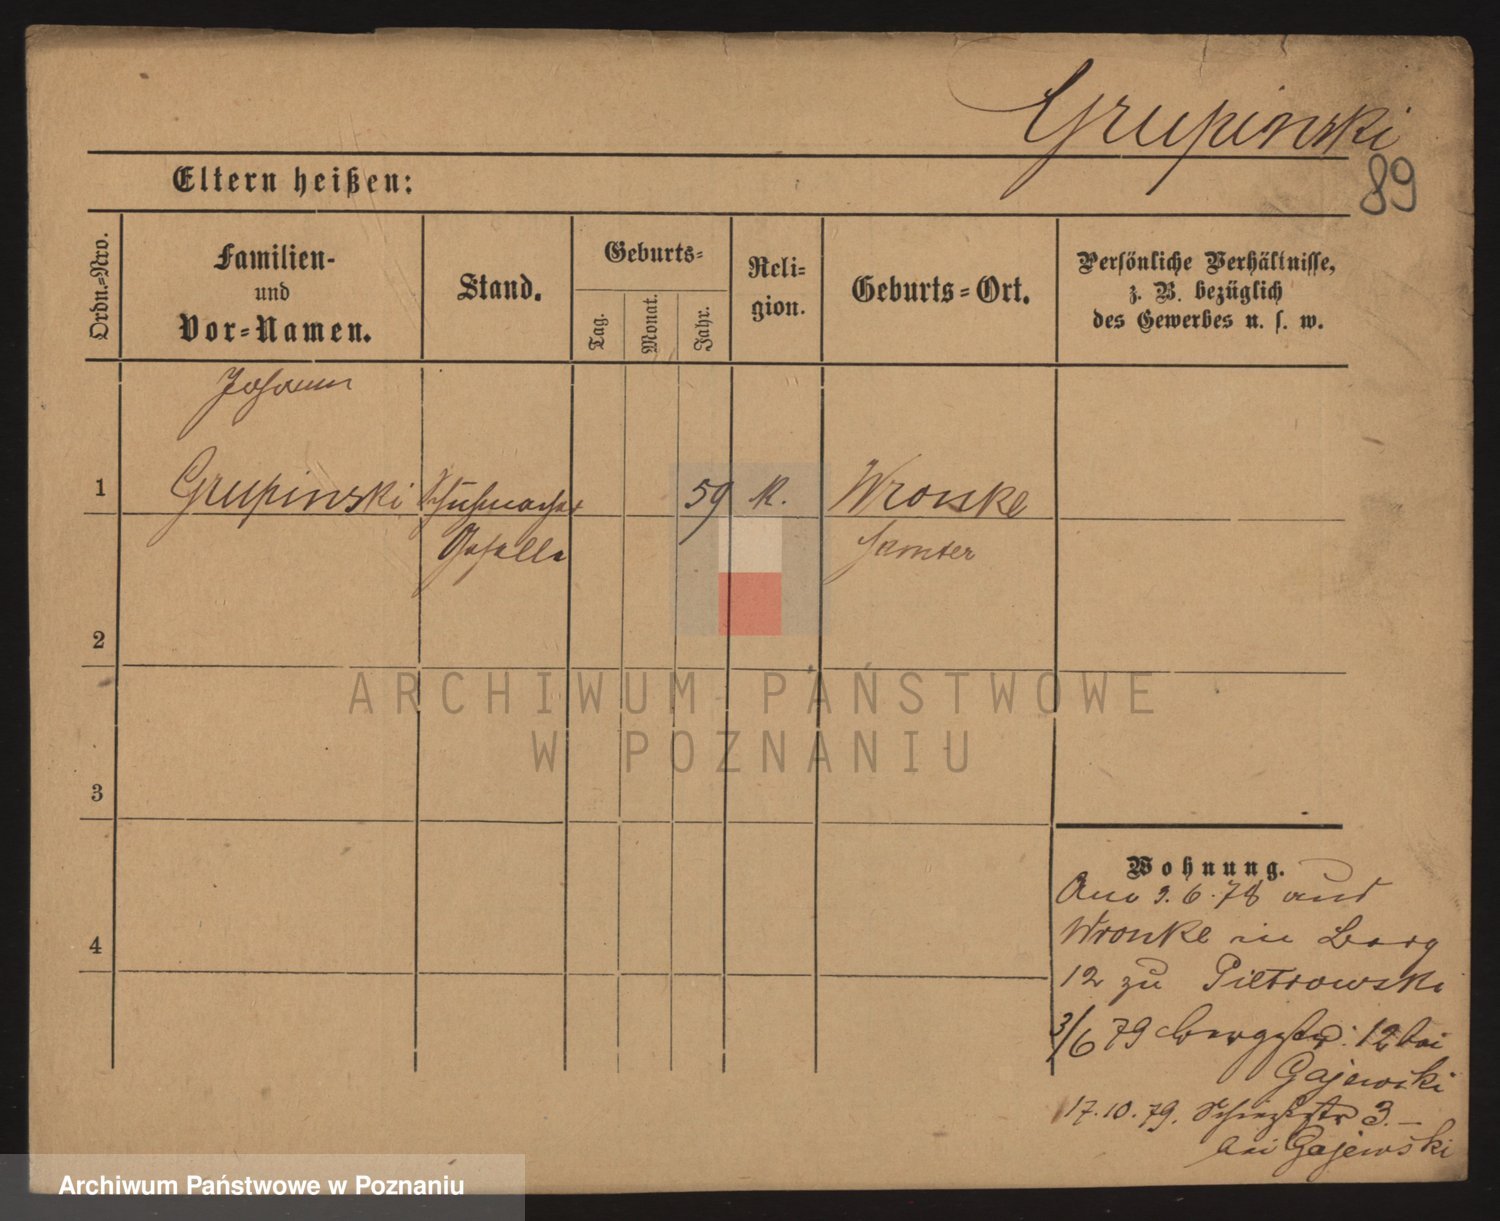 Grupinski
89
Eltern heißen:
Ordn.-Nro.
Familien-
und
Vor-Namen.
Stand.
Geburts-
Tag.
Monat.
Jahr.
Reli-
gion.
Geburts-Ort.
Persönliche Verhältnisse,
z. B. bezüglich
des Gewerbes u. s. w.
Johann
1 Grupinski Schuhmacher 59 k. Wronke
Geselle Samter
2
3
4
Wohnung.
9.6.78 aus
Wronke in Berg
12 zu Pietrowski
3/6 79 Bergstr. 12 bei
Gajewski
17.10.79. 3.–
bei Gajewski
ARCHIWUM PAŃSTWOWE
W POZNANIU
Archiwum Państwowe w Poznaniu